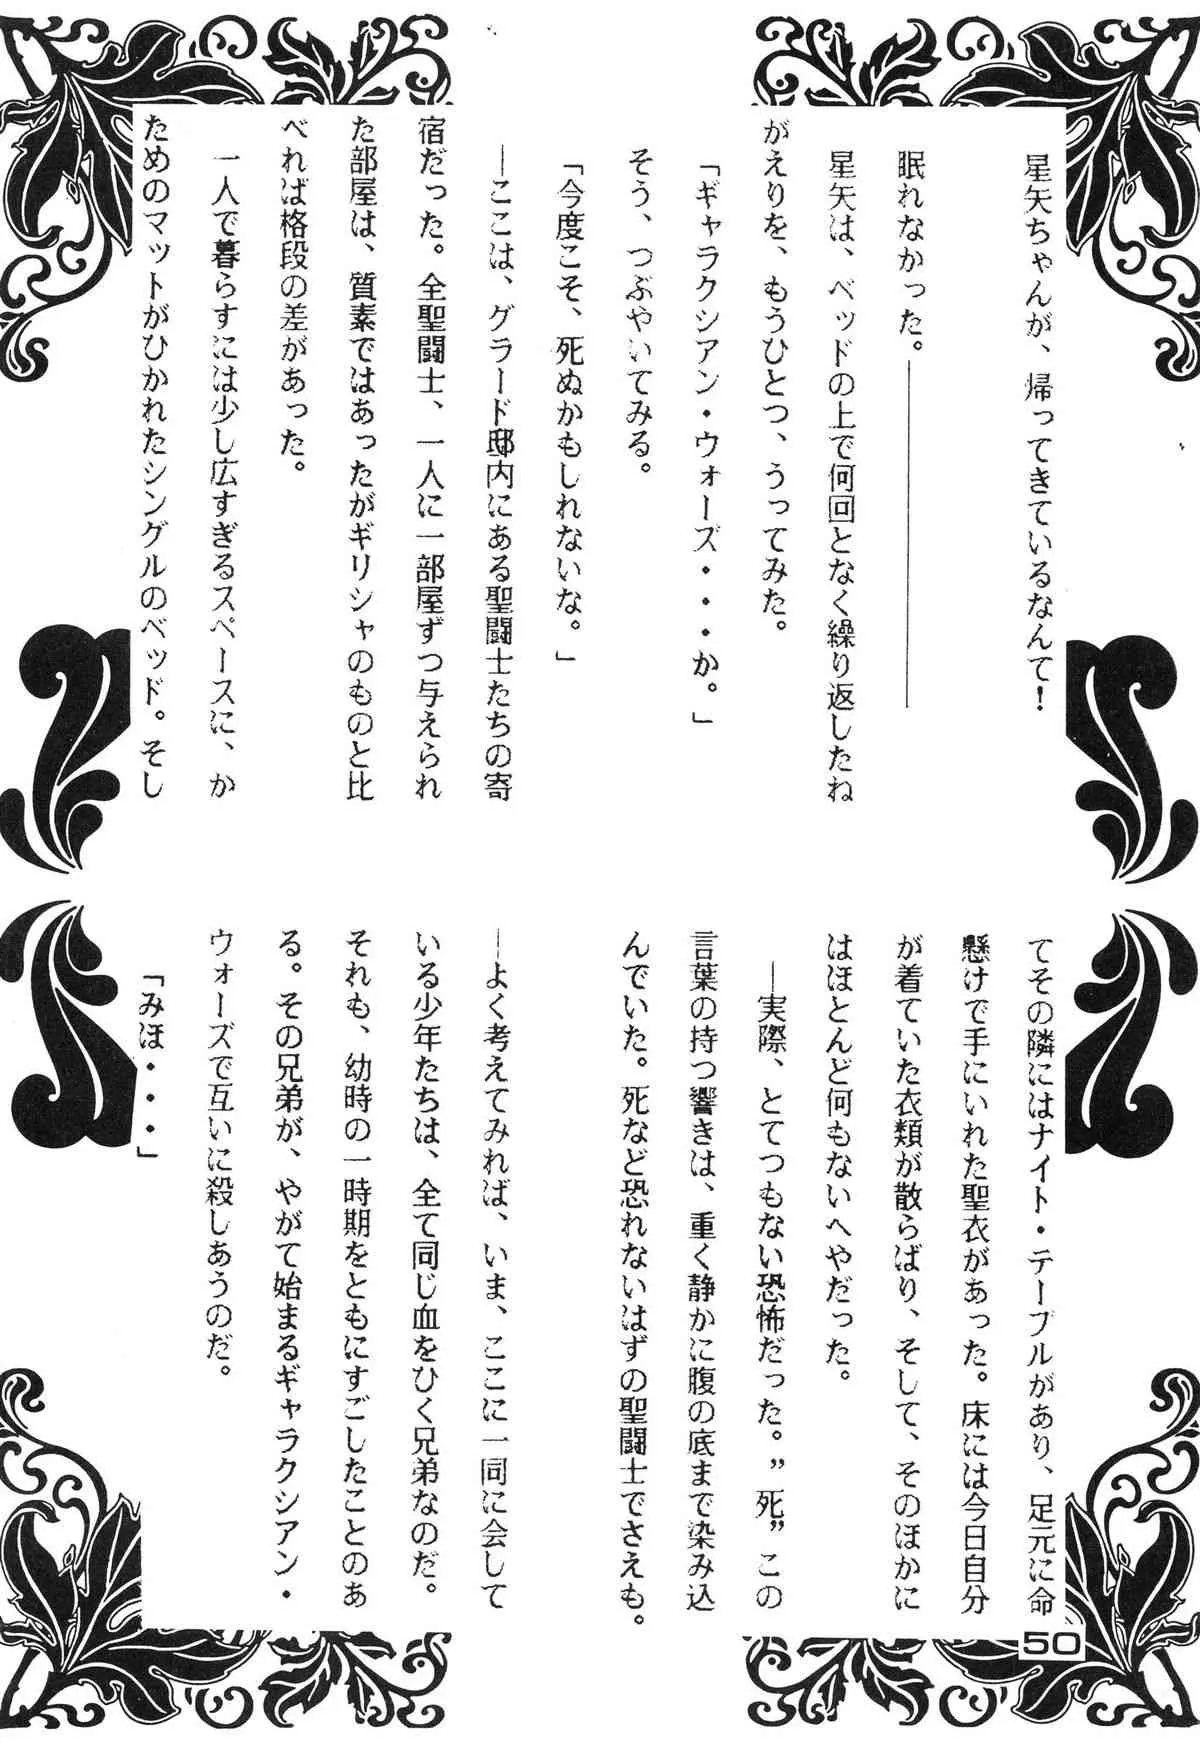 星矢ちゃんが、帰ってきているなんて！
眠れなかった。――――――
星矢は、ベッドの上で何回となく繰り返したね
がえりを、もうひとつ、うってみた。
「ギャラクシアン・ウォーズ・・・か。」
そう、つぶやいてみる。
「今度こそ、死ぬかもしれないな。」
―ここは、グラード邸内にある聖闘士たちの寄
宿だった。全聖闘士、一人に一部屋ずつ与えられ
た部屋は、質素ではあったがギリシャのものと比
べれば格段の差があった。
一人で暮らすには少し広すぎるスペースに、か
ためのマットがひかれたシングルのベッド。そし
てその隣にはナイト・テーブルがあり、足元に命
懸けで手にいれた聖衣があった。床には今日自分
が着ていた衣類が散らばり、そして、そのほかに
はほとんど何もないへやだった。
―実際、とてつもない恐怖だった。”死”この
言葉の持つ響きは、重く静かに腹の底まで染み込
んでいた。死など恐れないはずの聖闘士でさえも。
―よく考えてみれば、いま、ここに一同に会して
いる少年たちは、全て同じ血をひく兄弟なのだ。
それも、幼時の一時期をともにすごしたことのあ
る。その兄弟が、やがて始まるギャラクシアン・
ウォーズで互いに殺しあうのだ。
「みほ・・・」
50